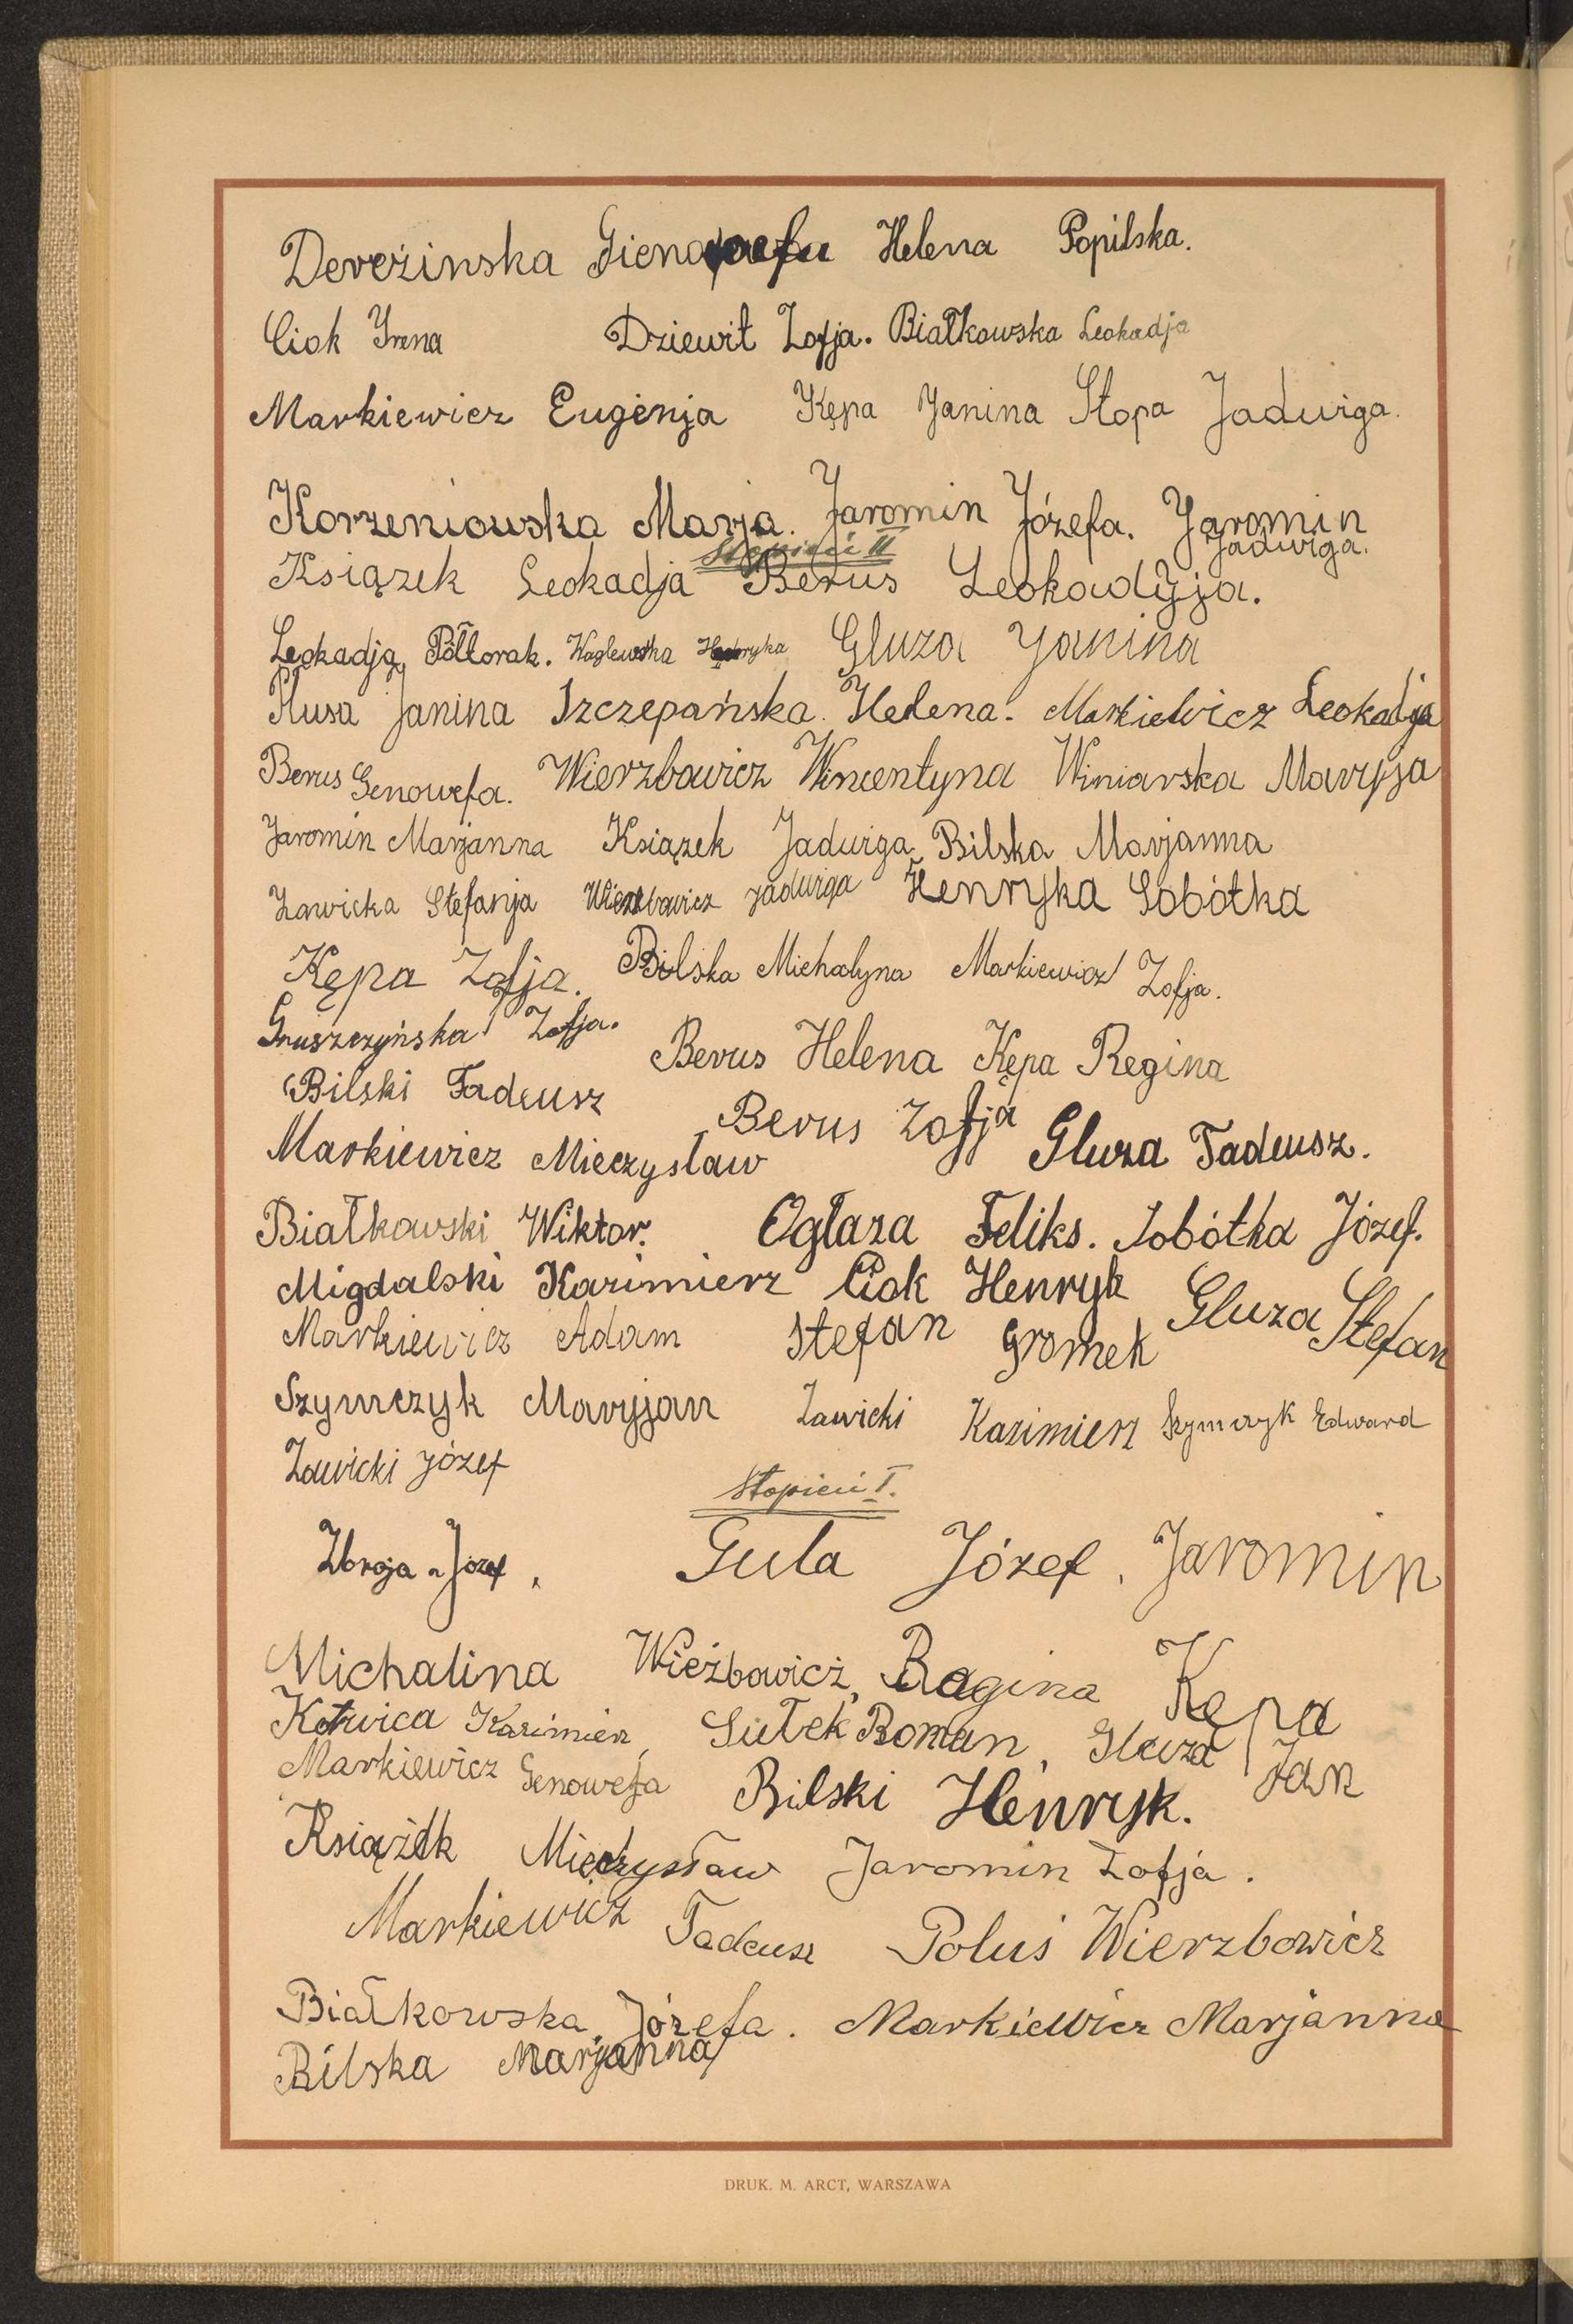 Dereżinska Gienowefa Helena Popilska.
Ciok Irena Dziewit Zofja. Białkowska Leokadja
Markiewicz Eugenja Kępa Janina Stopa Jadwiga.
Korzeniowska Marja. Jaromin Józefa. Jaromin
Jadwiga.
Stopień II
Książek Leokadja Berus Leokadyja.
Leokadja Półtorak. Waglewska Henryka Gluza Janina
Plusa Janina Szczepańska Helena. Markiewicz Leokadja
Berus Genowefa. Wierzbowicz Wincentyna Winiarska Maryja
Jaromin Marjanna Książek Jadwiga Bilska Marjanna
Zawicka Stefanja Wierzbowicz Jadwiga Henryka Sobótka
Kępa Zofja. Bilska Michalyna Markiewicz Zofja.
Gruszczyńska Zofja.
Berus Helena Kępa Regina
Bilski Tadeusz
Berus Zofja Gluza Tadeusz.
Markiewicz Mieczysław
Białkowski Wiktor. Ogłaza Feliks. Sobótka Józef.
Migdalski Kazimierz Ciok Henryk Gluza Stefan
Markiewicz Adam Stefan Gromek
Szymczyk Maryjan Zawicki Kazimierz Szymczyk Edward
Zawicki Józef
Stopień I.
Zbroja Józef, Gula Józef, Jaromin
Michalina Wieżbowicz, Regina Kępa
Kotwica Kazimierz, Sułek Roman, Gluza Jan
Markiewicz Genowefa Bilski Henryk.
Książek Mieczysław Jaromin Zofja.
Markiewicz Tadeusz Poluś Wierzbowicz
Białkowska Józefa. Markiewicz Marjanna
Bilska Marjanna
DRUK. M. ARCT, WARSZAWA